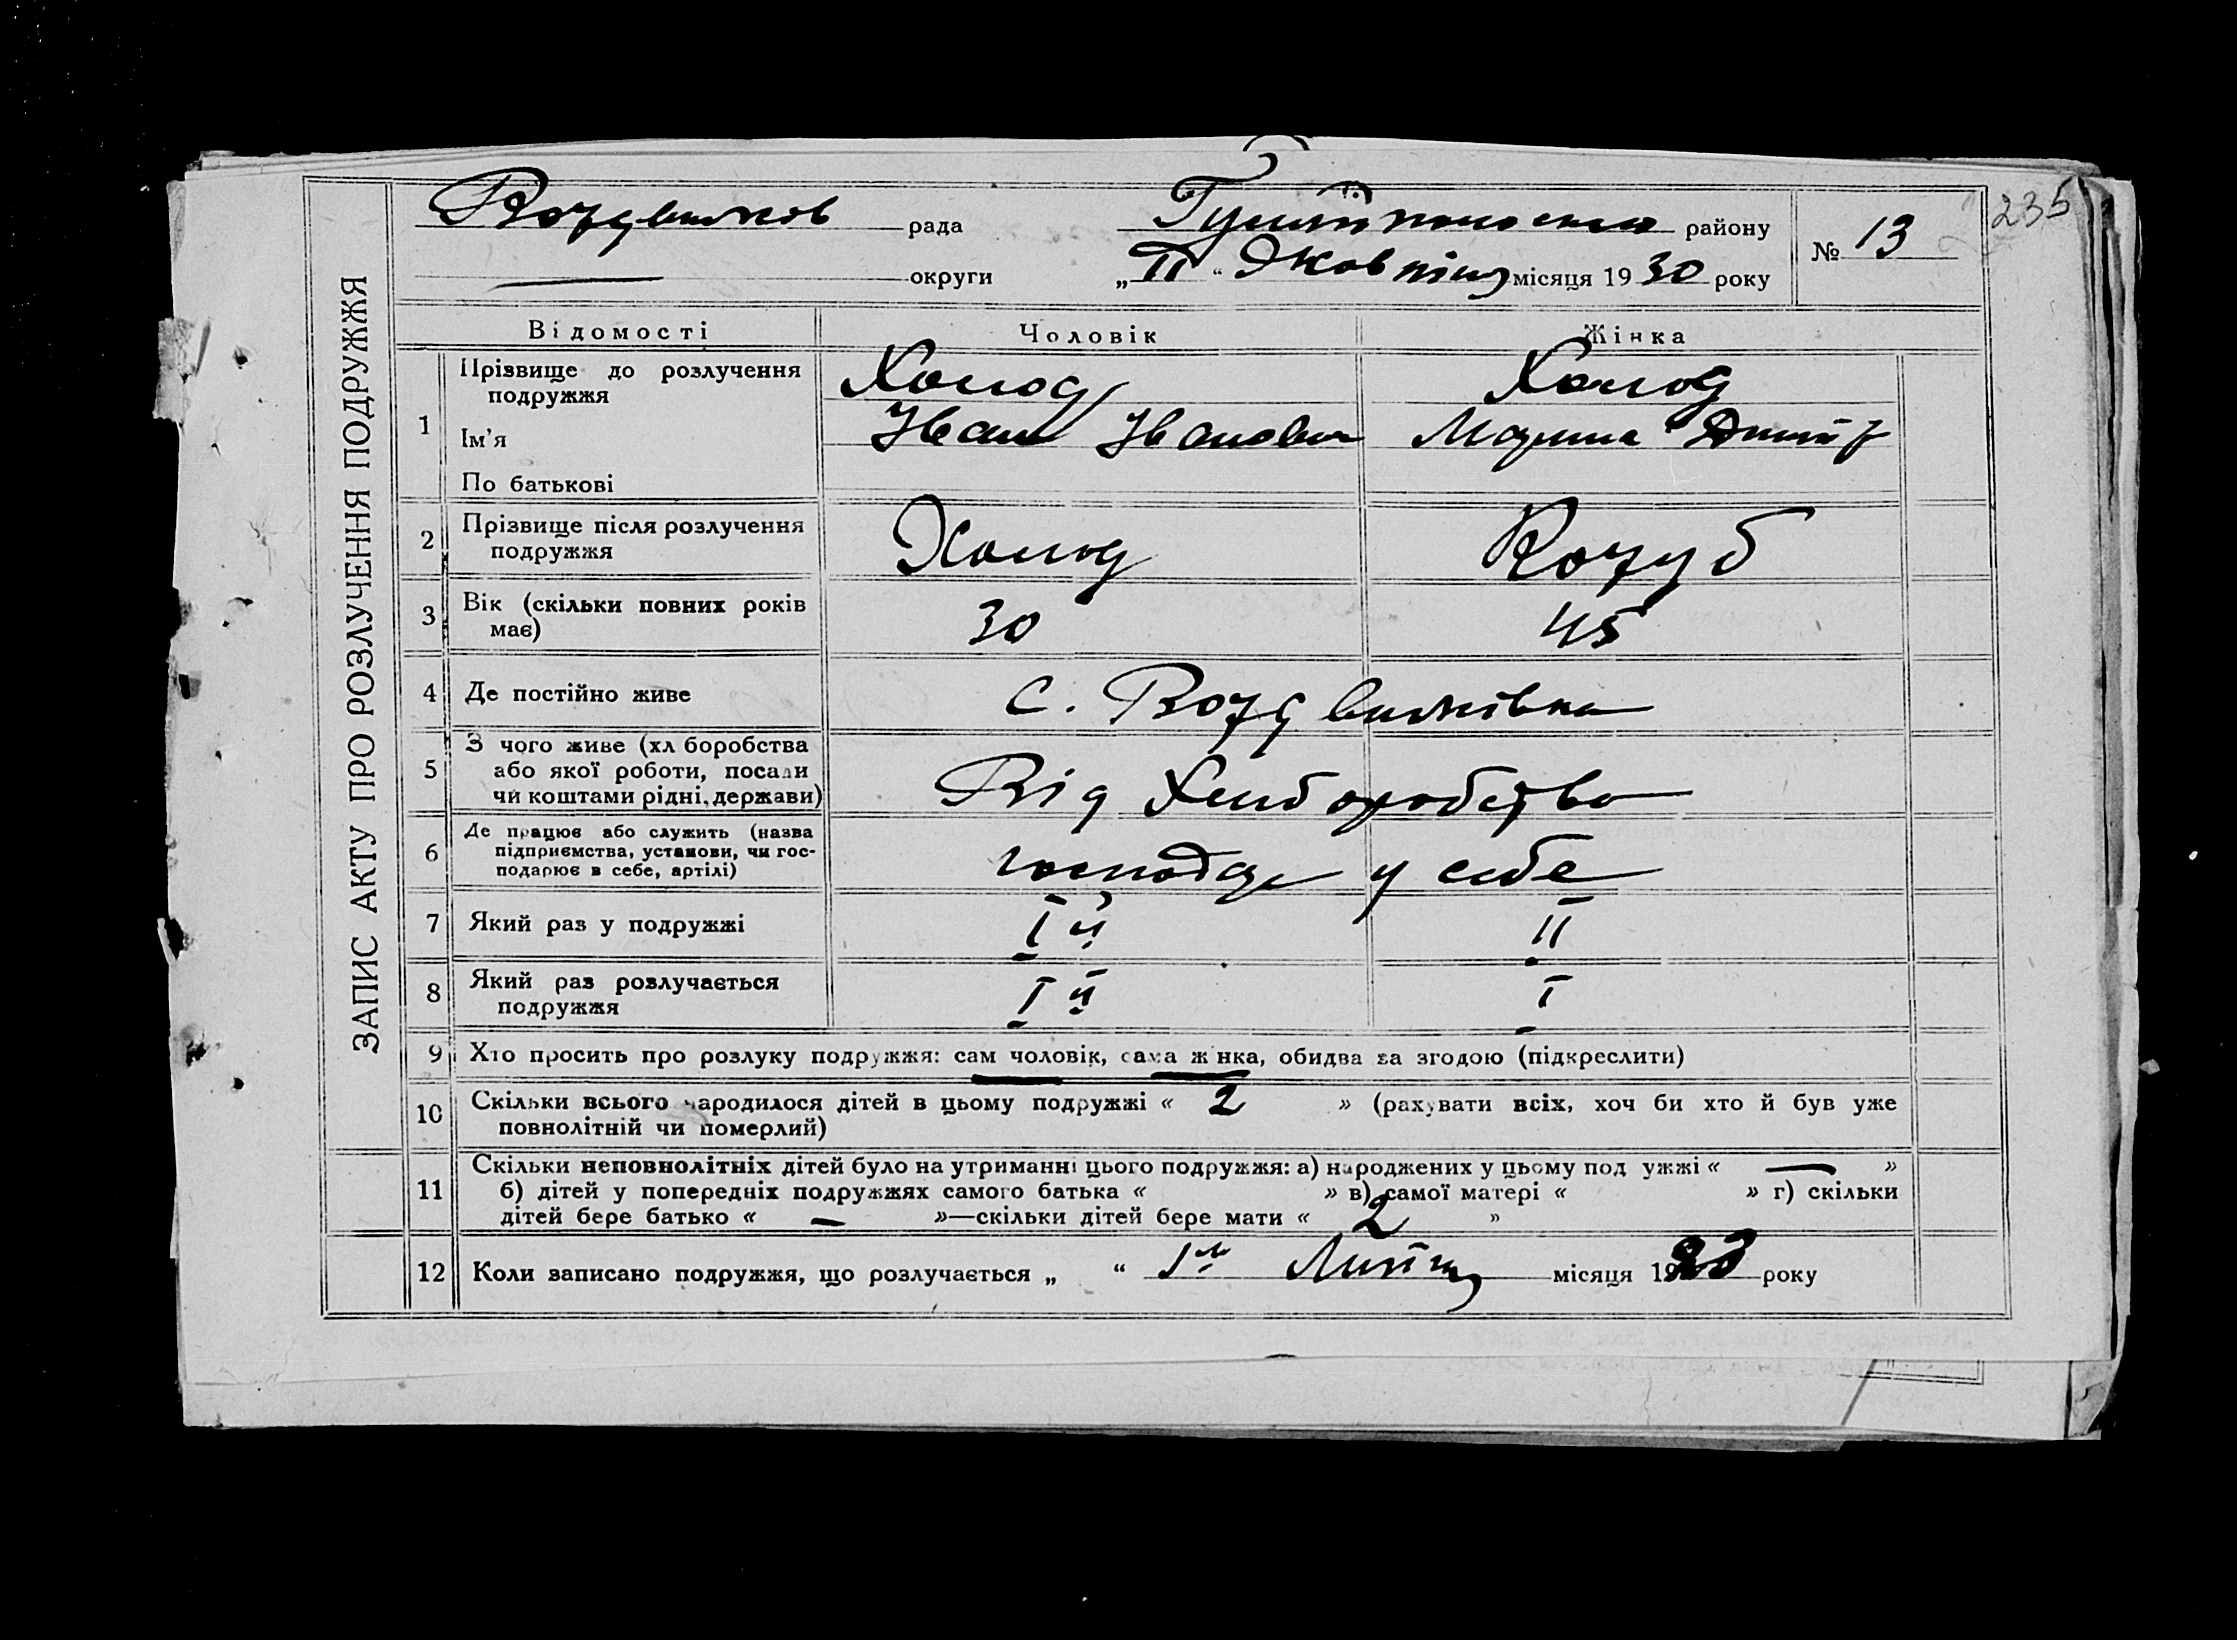 235
Воздвижков рада Гуляйпольського району № 13
округи „11“ Жовтня місяця 1930 року
ЗАПИС АКТУ ПРО РОЗЛУЧЕННЯ ПОДРУЖЖЯ
Відомості Чоловік Жінка
1 Прізвище до розлучення Холод Холод
подружжя
Ім'я Іван Іванович Марина Дмитр
По батькові
2 Прізвище після розлучення Холод Козуб
подружжя
3 Вік (скільки повних років 30 45
має)
4 Де постійно живе с. Воздвижівка
5 З чого живе (хліборобства Від Хліборобства
або якої роботи, посади
чи коштами рідні, держави)
6 Де працює або служить (назва
підприємства, установи, чи гос- у себе
подарює в себе, артілі)
7 Який раз у подружжі I й II
8 Який раз розлучається I й I
подружжя
9 Хто просить про розлуку подружжя: сам чоловік, сама жінка, обидва за згодою (підкреслити)
10 Скільки всього народилося дітей в цьому подружжі « 2 » (рахувати всіх, хоч би хто й був уже
повнолітній чи померлий)
11 Скільки неповнолітніх дітей було на утриманні цього подружжя: а) народжених у цьому подружжі « — »
б) дітей у попередніх подружжях самого батька « » в) самої матері « » г) скільки
дітей бере батько « — »—скільки дітей бере мати « 2 »
12 Коли записано подружжя, що розлучається „ “ Липня місяця 1923 року